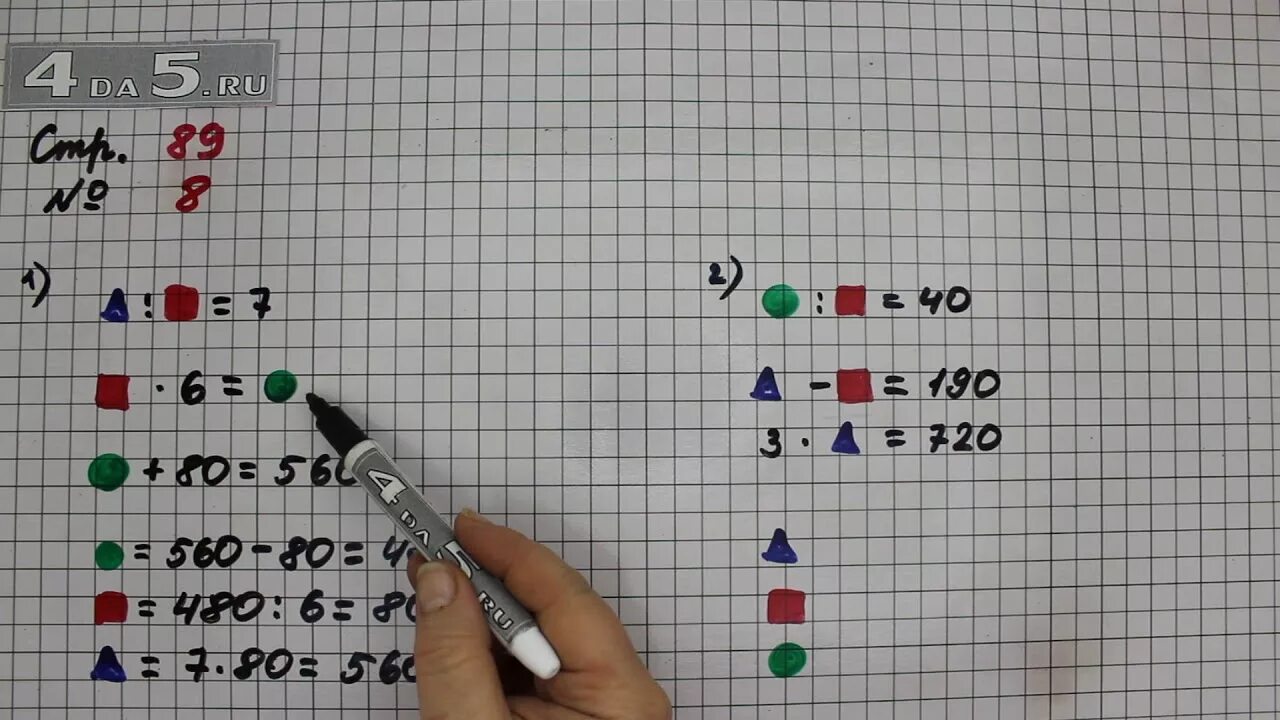 4DA5.RU
Стр. 89
№ 8
1)
▲ : ■ = 7
■ · 6 = ●
● + 80 = 560
● = 560 - 80 = 4
■ = 480 : 6 = 80
▲ = 7 · 80 = 560
2)
● : ■ = 40
▲ - ■ = 190
3 · ▲ = 720
▲
■
●
4DA5.RU